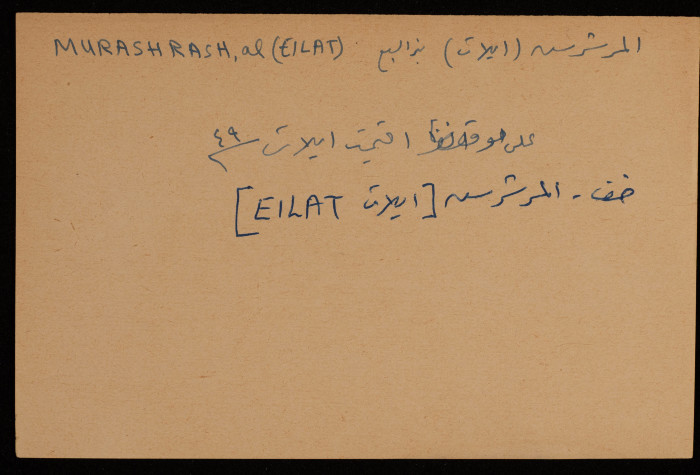 MURASHRASH, al (EILAT) المرشرش (ايلات) بئر السبع
على موقعها اقيمت ايلات ٤٩
خف - المرشرش [ايلات EILAT]